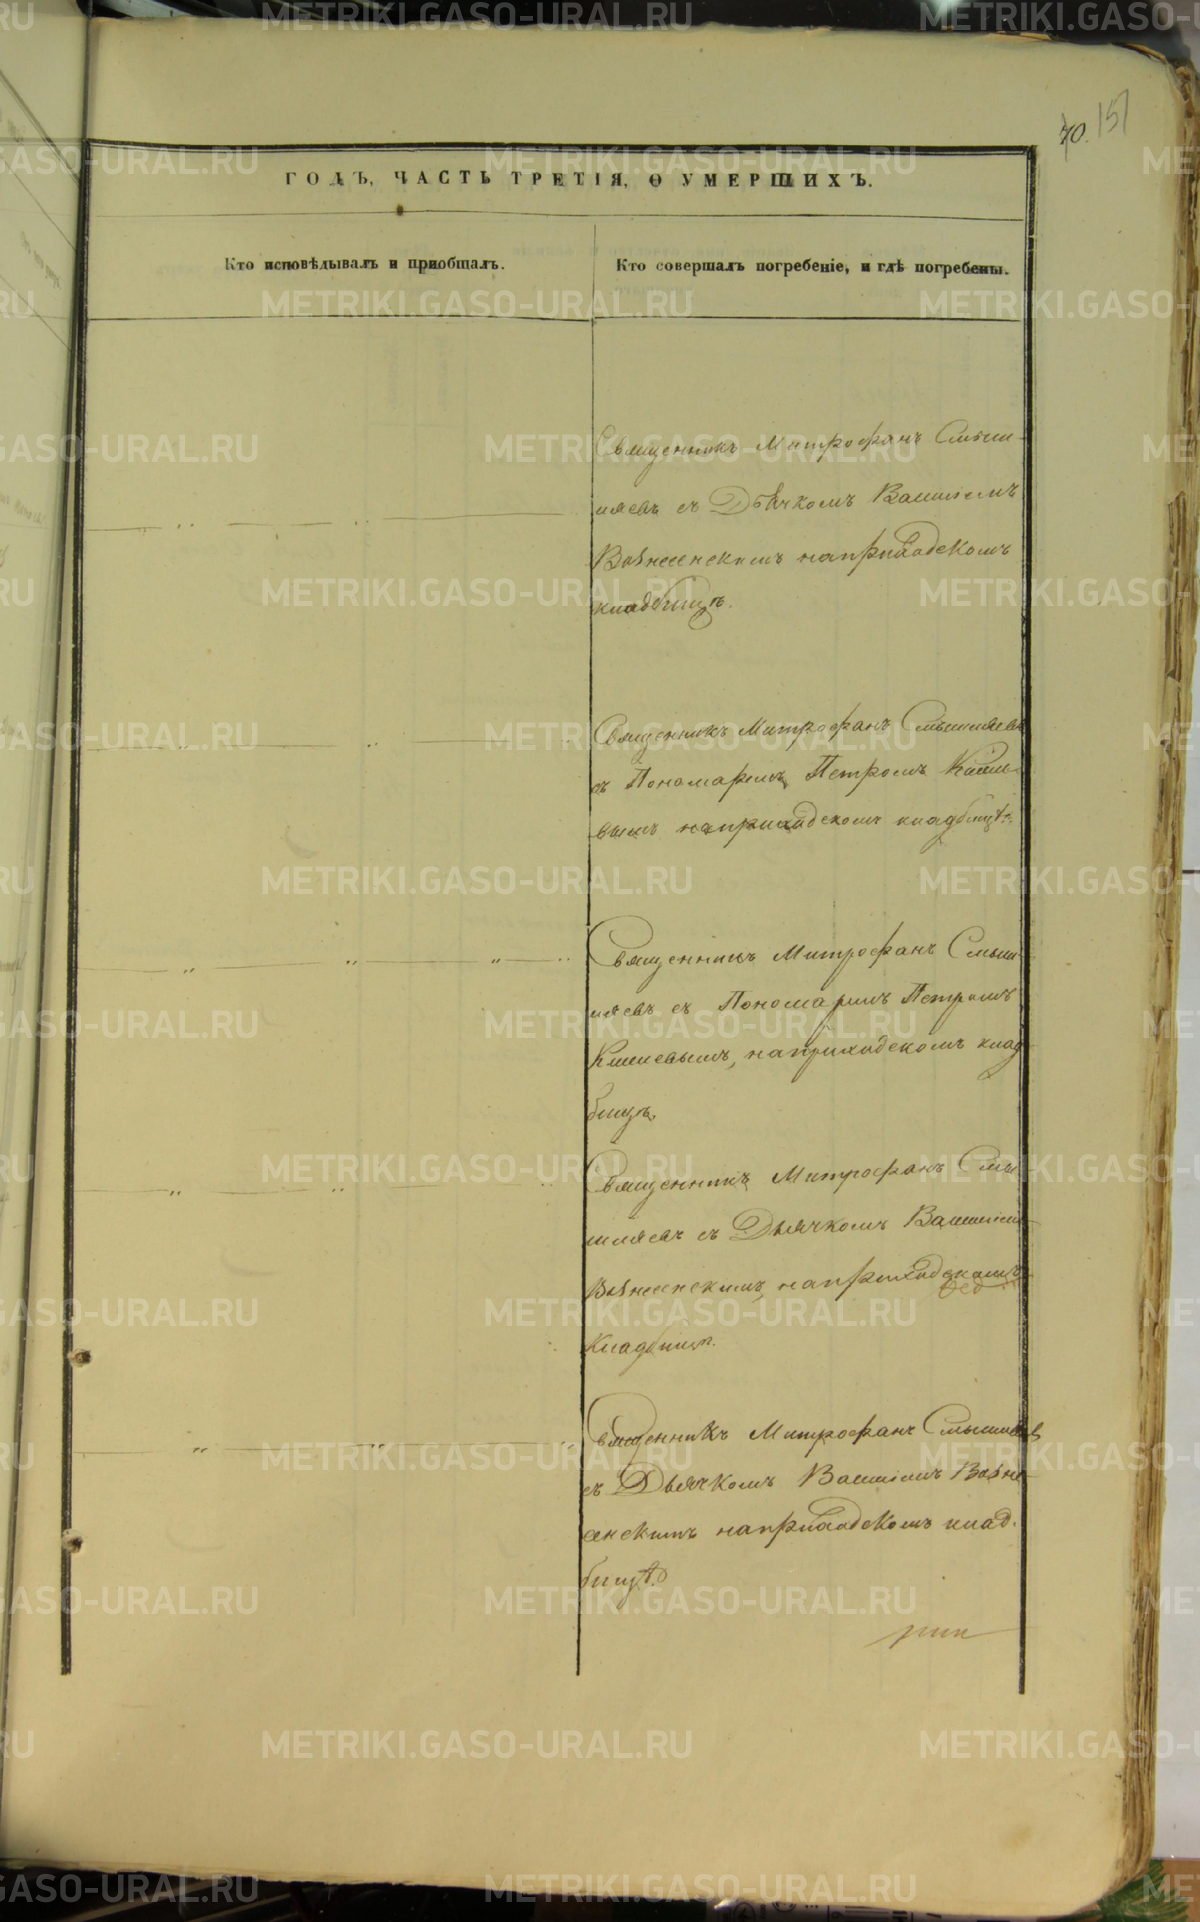 70. 151
ГОДЪ, ЧАСТЬ ТРЕТІЯ, О УМЕРШИХЪ.
Кто исповѣдывалъ и пріобщалъ.
Кто совершалъ погребеніе, и гдѣ погребены.
Священникъ Митрофанъ Смыш-
ляевъ съ Дьячкомъ Василіемъ
Вознесенскимъ на приходскомъ
кладбищѣ.
Священникъ Митрофанъ Смышляевъ
съ Пономаремъ Петромъ
вымъ на приходскомъ кладбищѣ.
Священникъ Митрофанъ Смыш
ляевъ съ Пономаремъ Петромъ
на приходскомъ клад
бищѣ.
Священникъ Митрофанъ Смы
шляевъ съ Дьячкомъ Василіемъ
Вознесенскимъ на приходскомъ
Кладбищѣ.
Священникъ Митрофанъ Смышляевъ
съ Дьячкомъ Василіемъ Возне
сенскимъ на приходскомъ клад-
бищѣ.
METRIKI.GASO-URAL.RU